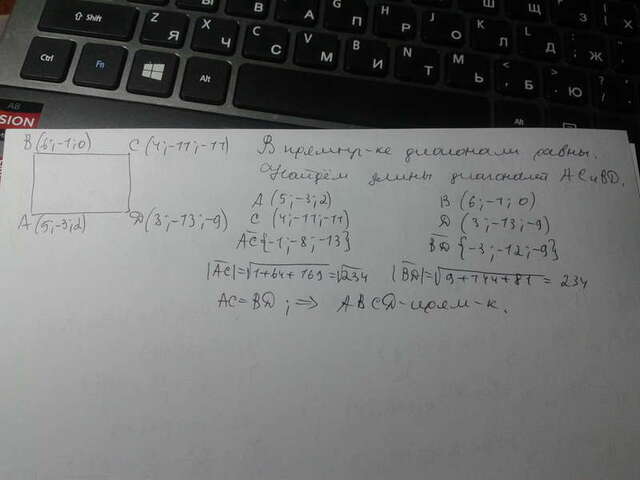 Shift
Z Я
X Ч
C С
V М
B И
N Т
M Ь
Б
Ю
Ctrl
Fn
Alt
П
Р
О
Л
Д
Ж
G
H
J
K
L
A8
SION
B (6;-1;0)
C (4;-11;-11)
A (5;-3;2)
D (3;-13;-9)
В прямоуг-ке диагонали равны.
Найдём длины диагоналей AC и BD.
A (5;-3;2) B (6;-1;0)
C (4;-11;-11) D (3;-13;-9)
AC {-1;-8;-13} BD {-3;-12;-9}
|AC|=√1+64+169=√234 |BD|=√9+144+81=234
AC=BD; ⇒ ABCD-прям-к.